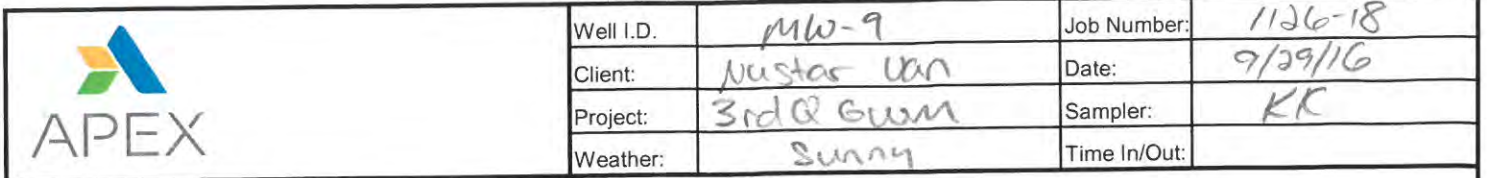 Well I.D. MW-9 Job Number: 1126-18
Client: Nustar Van Date: 9/29/16
Project: 3rd Q GWM Sampler: KK
Weather: Sunny Time In/Out:
APEX